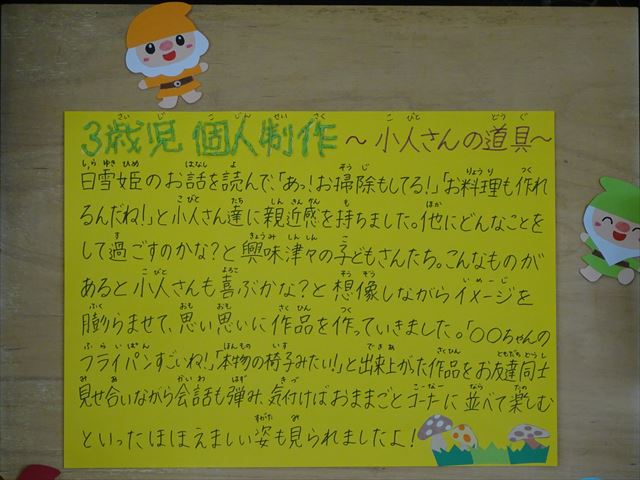 3歳児 個人制作 ～小人さんの道具～
白雪姫のお話を読んで、「あっ!お掃除もしてる!」「お料理も作れ
るんだね!」と小人さん達に親近感を持ちました。他にどんなことを
して過ごすのかな?と興味津々の子どもさんたち。こんなものが
あると小人さんも喜ぶかな?と想像しながらイメージを
膨らませて、思い思いに作品を作っていきました。「〇〇ちゃんの
フライパンすごいね!」「本物の椅子みたい!」と出来上がた作品をお友達同士
見せ合いながら会話も弾み、気付けばおままごとコーナーに並べて楽しむ
といったほほえましい姿も見られましたよ!